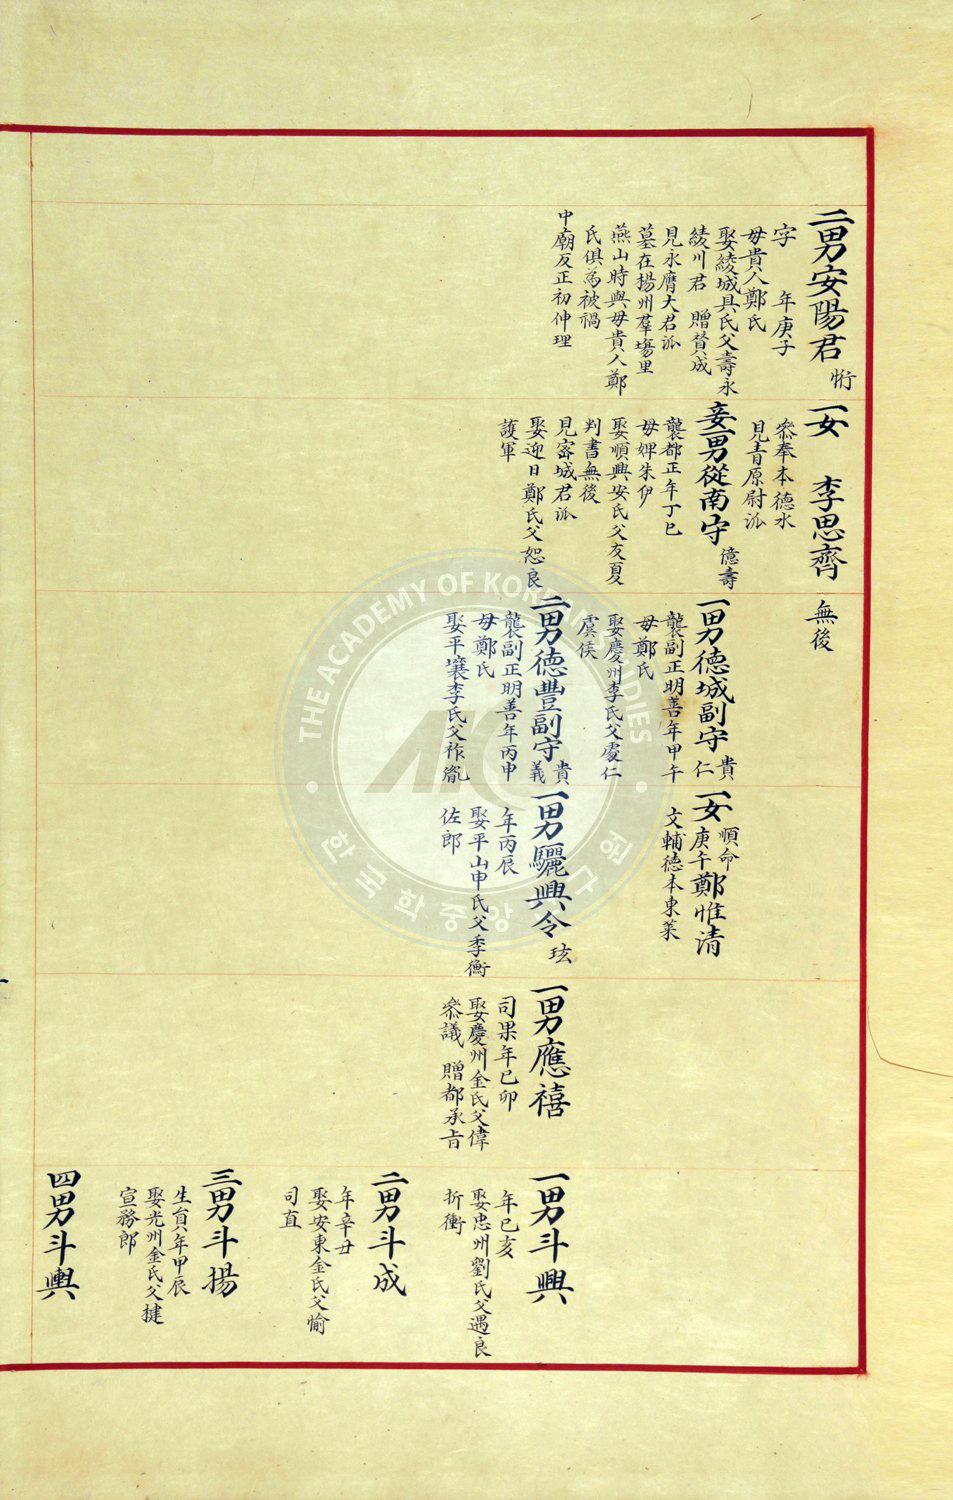 二男安陽君 㤚
字　年庚子
母貴人鄭氏
娶綾城具氏父壽永
綾川君　贈賛成
見永膺大君派
墓在揚州羣塲里
燕山時與母貴人鄭
氏俱爲被禍
中廟反正初伸理
一女　李思齊
叅奉本德水
見青原尉派
無後
妾一男從南守 億壽
襲都正年丁巳
母婢朱伊
娶順興安氏父友夏
判書無後
見密城君派
娶迎日鄭氏父恕良
護軍
一男德城副守 貴仁
襲副正明善年甲午
母鄭氏
娶慶州李氏父處仁
虞侯
一女 順命 庚午 鄭惟清
文輔德本東萊
二男德豐副守 貴義
襲副正明善年丙申
母鄭氏
娶平壤李氏父祚胤
一男驪興令 玹
年丙辰
娶平山申氏父季衡
佐郎
一男應禧
司果年己卯
娶慶州金氏父偉
叅議　贈都承旨
一男斗興
年己亥
娶忠州劉氏父遇良
折衝
二男斗成
年辛丑
娶安東金氏父愉
司直
三男斗揚
生員年甲辰
娶光州金氏父揵
宣務郎
四男斗輿
THE ACADEMY OF KOREAN STUDIES
한국학중앙연구원
AKS